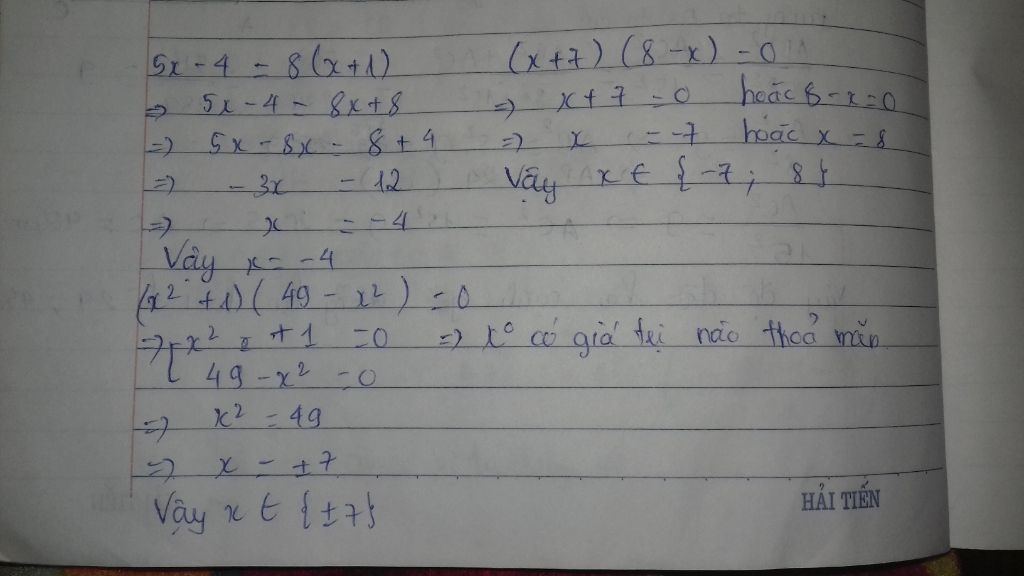 5x - 4 = 8(x+1)
=> 5x - 4 = 8x + 8
=> 5x - 8x = 8 + 4
=> -3x = 12
=> x = -4
Vậy x = -4
(x+7)(8-x) = 0
=> x + 7 = 0 hoặc 8 - x = 0
=> x = -7 hoặc x = 8
Vậy x ∈ {-7; 8}
(x² + 1)(49 - x²) = 0
=> [x² + 1 = 0 => k° có giá trị nào thoả mãn
49 - x² = 0
=> x² = 49
=> x = ±7
Vậy x ∈ {±7}
HẢI TIẾN